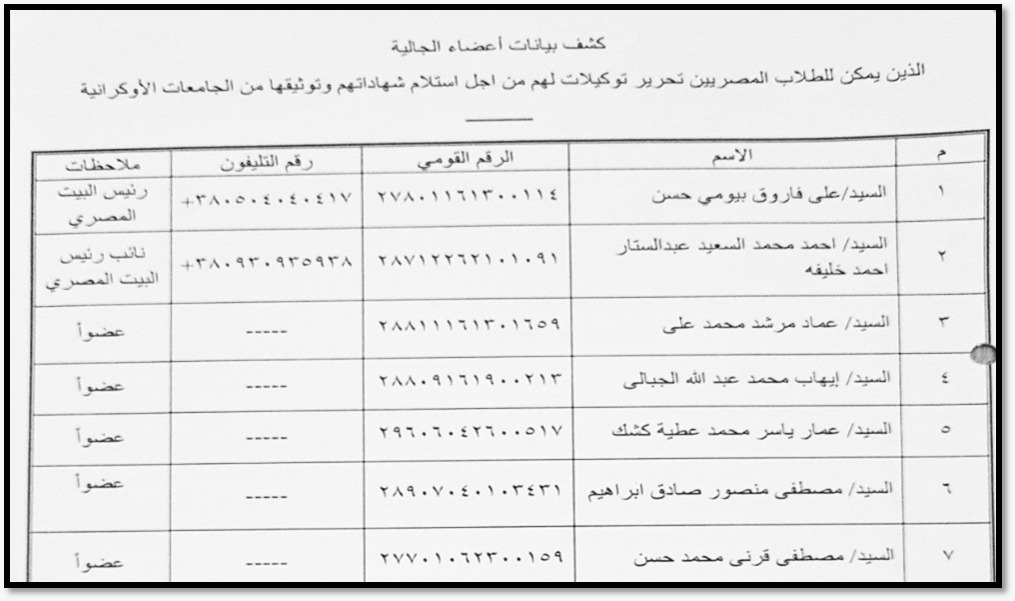 كشف بيانات أعضاء الجالية
الذين يمكن للطلاب المصريين تحرير توكيلات لهم من اجل استلام شهاداتهم وتوثيقها من الجامعات الأوكرانية
م الاسم الرقم القومي رقم التليفون ملاحظات
١ السيد/على فاروق بيومي حسن ٢٧٨٠١١٦١٣٠٠١١٤ +٣٨٠٥٠٤٠٤٠٤١٧ رئيس البيت
المصري
٢ السيد/ احمد محمد السعيد عبدالستار
احمد خليفه ٢٨٧١٢٢٦٢١٠١٠٩١ +٣٨٠٩٣٠٩٣٥٩٣٨ نائب رئيس
البيت المصري
٣ السيد/ عماد مرشد محمد على ٢٨٨١١١٦١٣٠١٦٥٩ ----- عضواً
٤ السيد/ إيهاب محمد عبد الله الجبالى ٢٨٨٠٩١٦١٩٠٠٢١٣ ----- عضواً
٥ السيد/ عمار ياسر محمد عطية كشك ٢٩٦٠٦٠٤٢٦٠٠٥١٧ ----- عضواً
٦ السيد/ مصطفى منصور صادق ابراهيم ٢٨٩٠٧٠٤٠١٠٣٤٣١ ----- عضواً
٧ السيد/ مصطفى قرنى محمد حسن ٢٧٧٠١٠٦٢٣٠٠١٥٩ ----- عضواً